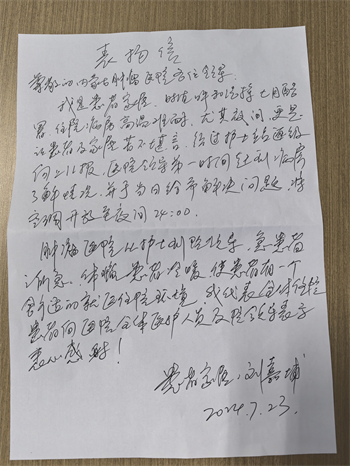 表扬信
尊敬的内蒙古肿瘤医院各位领导：
我是患者家属，时值呼和浩特七月酷
暑，住院病房高温难耐，尤其夜间，更是
让患者及家属苦不堪言，经过护士站逐级
向上汇报，医院领导第一时间赶到病房
了解情况，并于当日给予解决问题，将
空调开放至夜间24:00。
肿瘤医院从护士到院领导，急患者
所急，体贴患者冷暖，使患者有一个
舒适的就医住院环境，我代表全体住院
患者向医院全体医护人员及院领导表示
衷心感谢！
患者家属：刘嘉埔
2024.7.23.